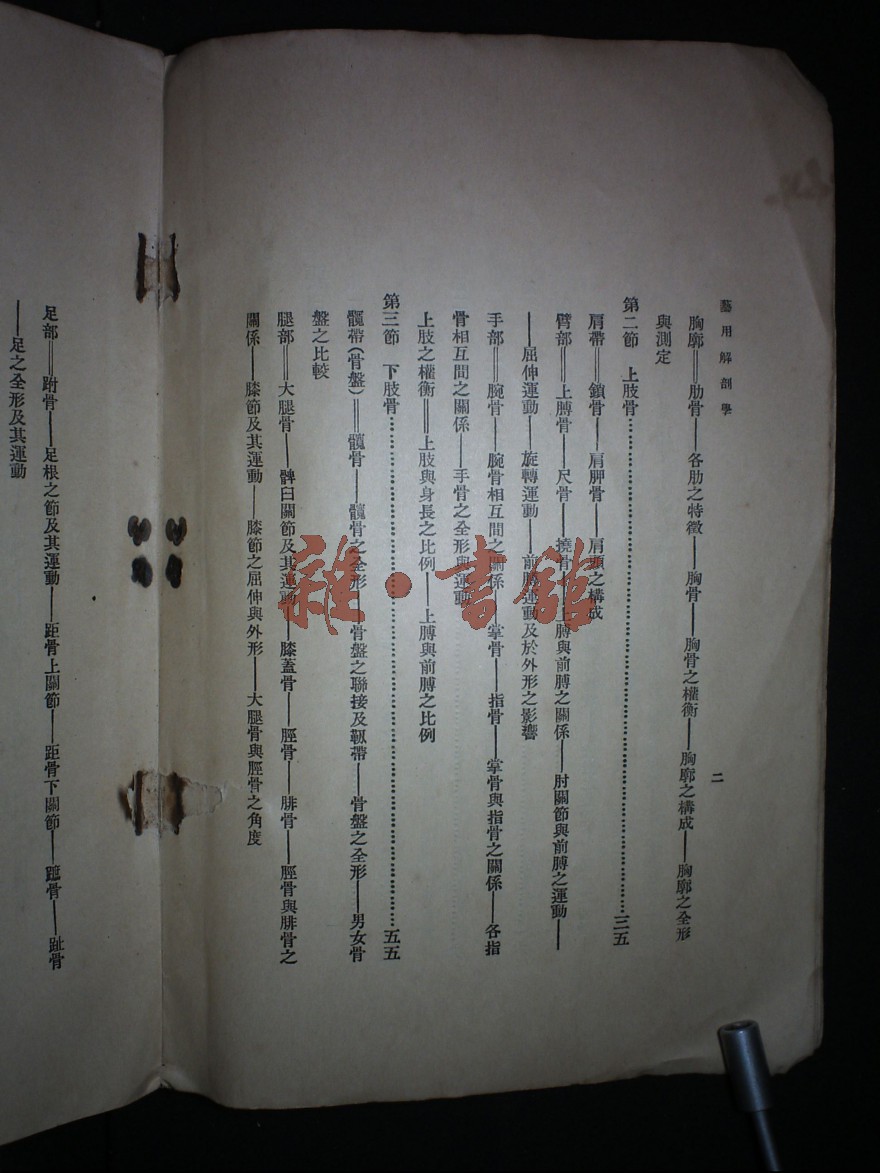 藝用解剖學
二
胸廓＝＝肋骨——各肋之特徵——胸骨——胸骨之權衡——胸廓之構成——胸廓之全形
與測定
第二節 上肢骨……三五
肩帶＝＝鎖骨——肩胛骨——肩頭之構成
臂部＝＝上膊骨——尺骨——撓骨——上膊與前膊之關係——肘關節與前膊之運動——
——屈伸運動——旋轉運動——前膊運動及於外形之影響
手部＝＝腕骨——腕骨相互間之關係——掌骨——指骨——掌骨與指骨之關係——各指
骨相互間之關係——手骨之全形與運動
上肢之權衡＝＝上肢與身長之比例——上膊與前膊之比例
第三節 下肢骨……五五
髖帶(骨盤)＝＝髖骨——髖骨之全形——骨盤之聯接及靱帶——骨盤之全形——男女骨
盤之比較
腿部＝＝大腿骨——髀臼關節及其運動——膝蓋骨——脛骨——腓骨——脛骨與腓骨之
關係——膝節及其運動——膝節之屈伸與外形——大腿骨與脛骨之角度
足部＝＝跗骨——足根之節及其運動——距骨上關節——距骨下關節——蹠骨——趾骨
——足之全形及其運動
雜·書館